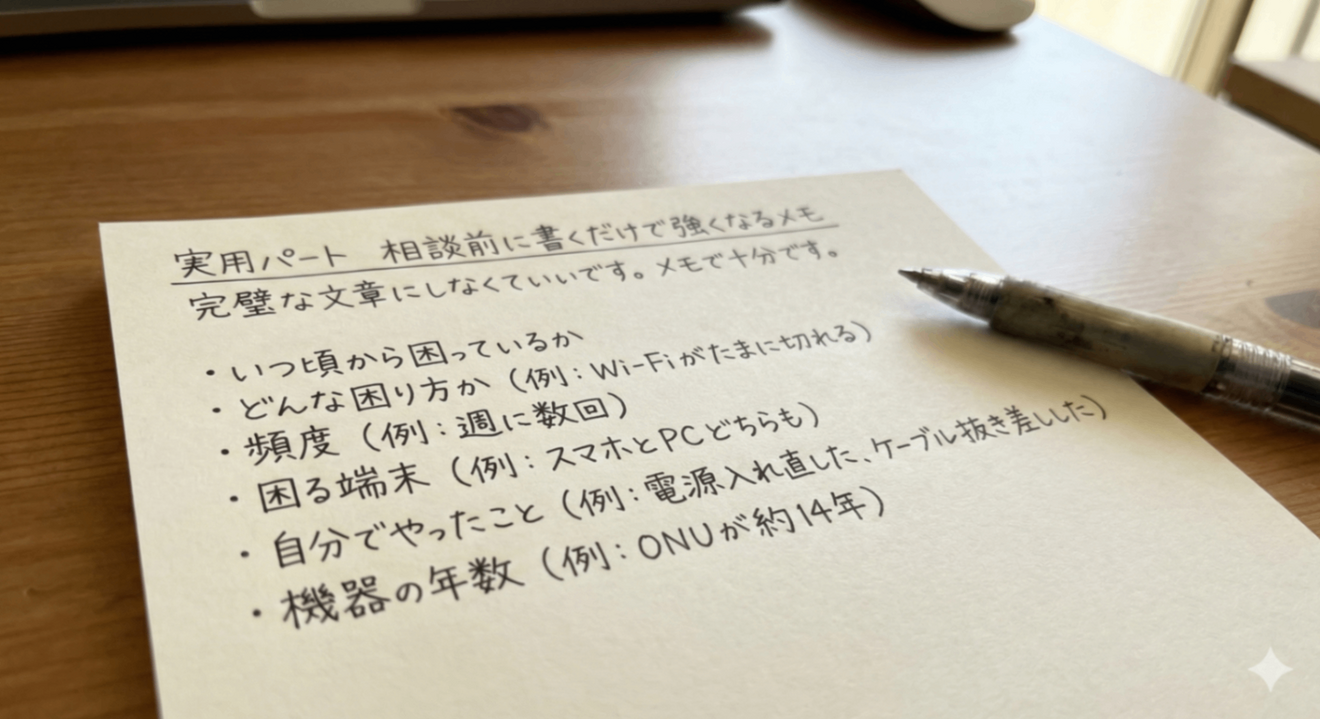 実用パート 相談前に書くだけで強くなるメモ
完璧な文章にしなくていいです。メモで十分です。
・いつ頃から困っているか
・どんな困り方か（例：Wi-Fiがたまに切れる）
・頻度（例：週に数回）
・困る端末（例：スマホとPCどちらも）
・自分でやったこと（例：電源入れ直した、ケーブル抜き差しした）
・機器の年数（例：ONUが約14年）